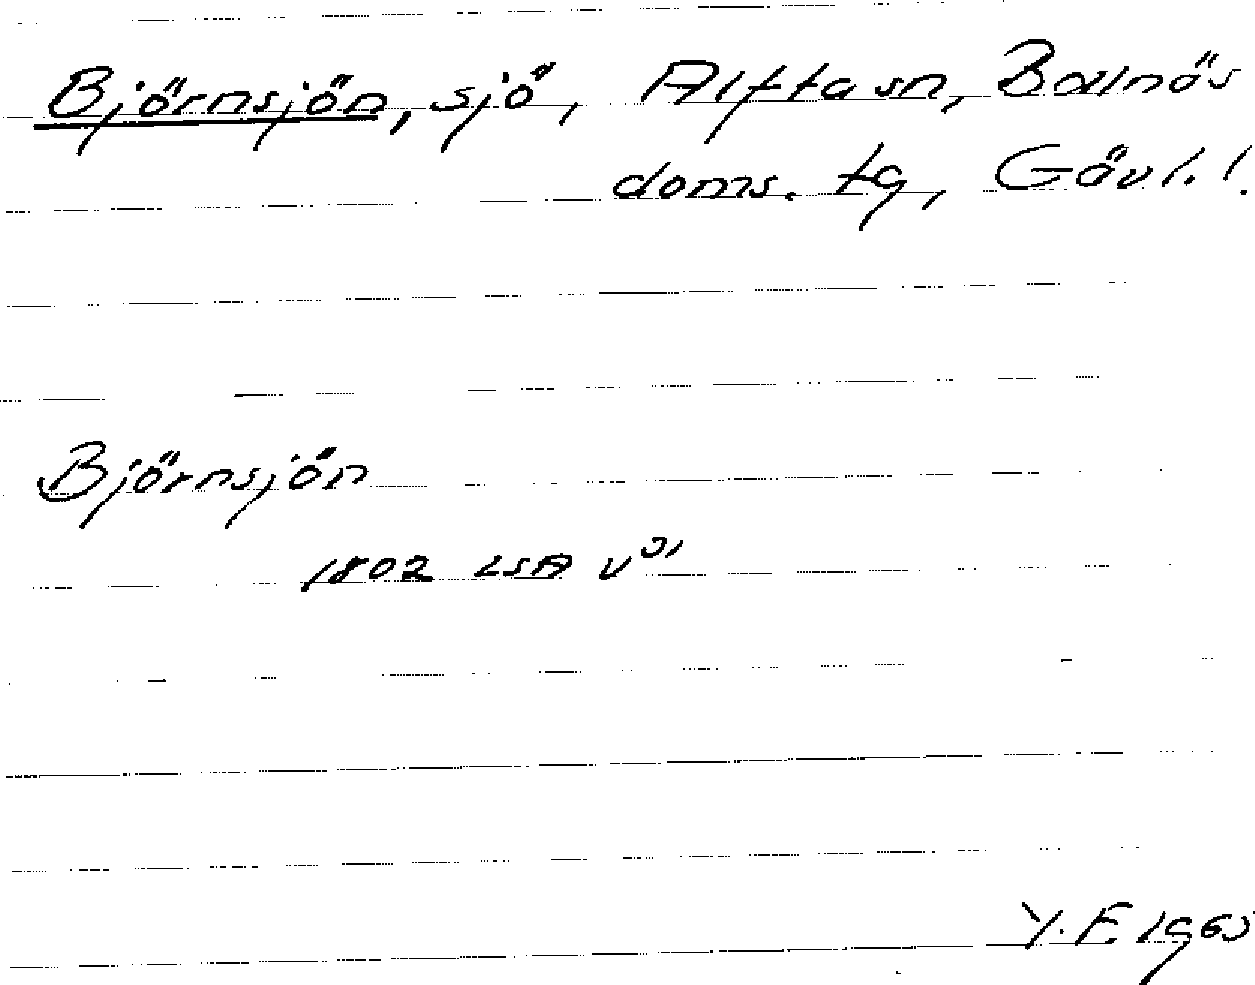 Björnsjön, sjö, Alfta sn, Bollnäs
doms. tg, Gävl. l.
Björnsjön
1802 LSA V
Y. F. 1965